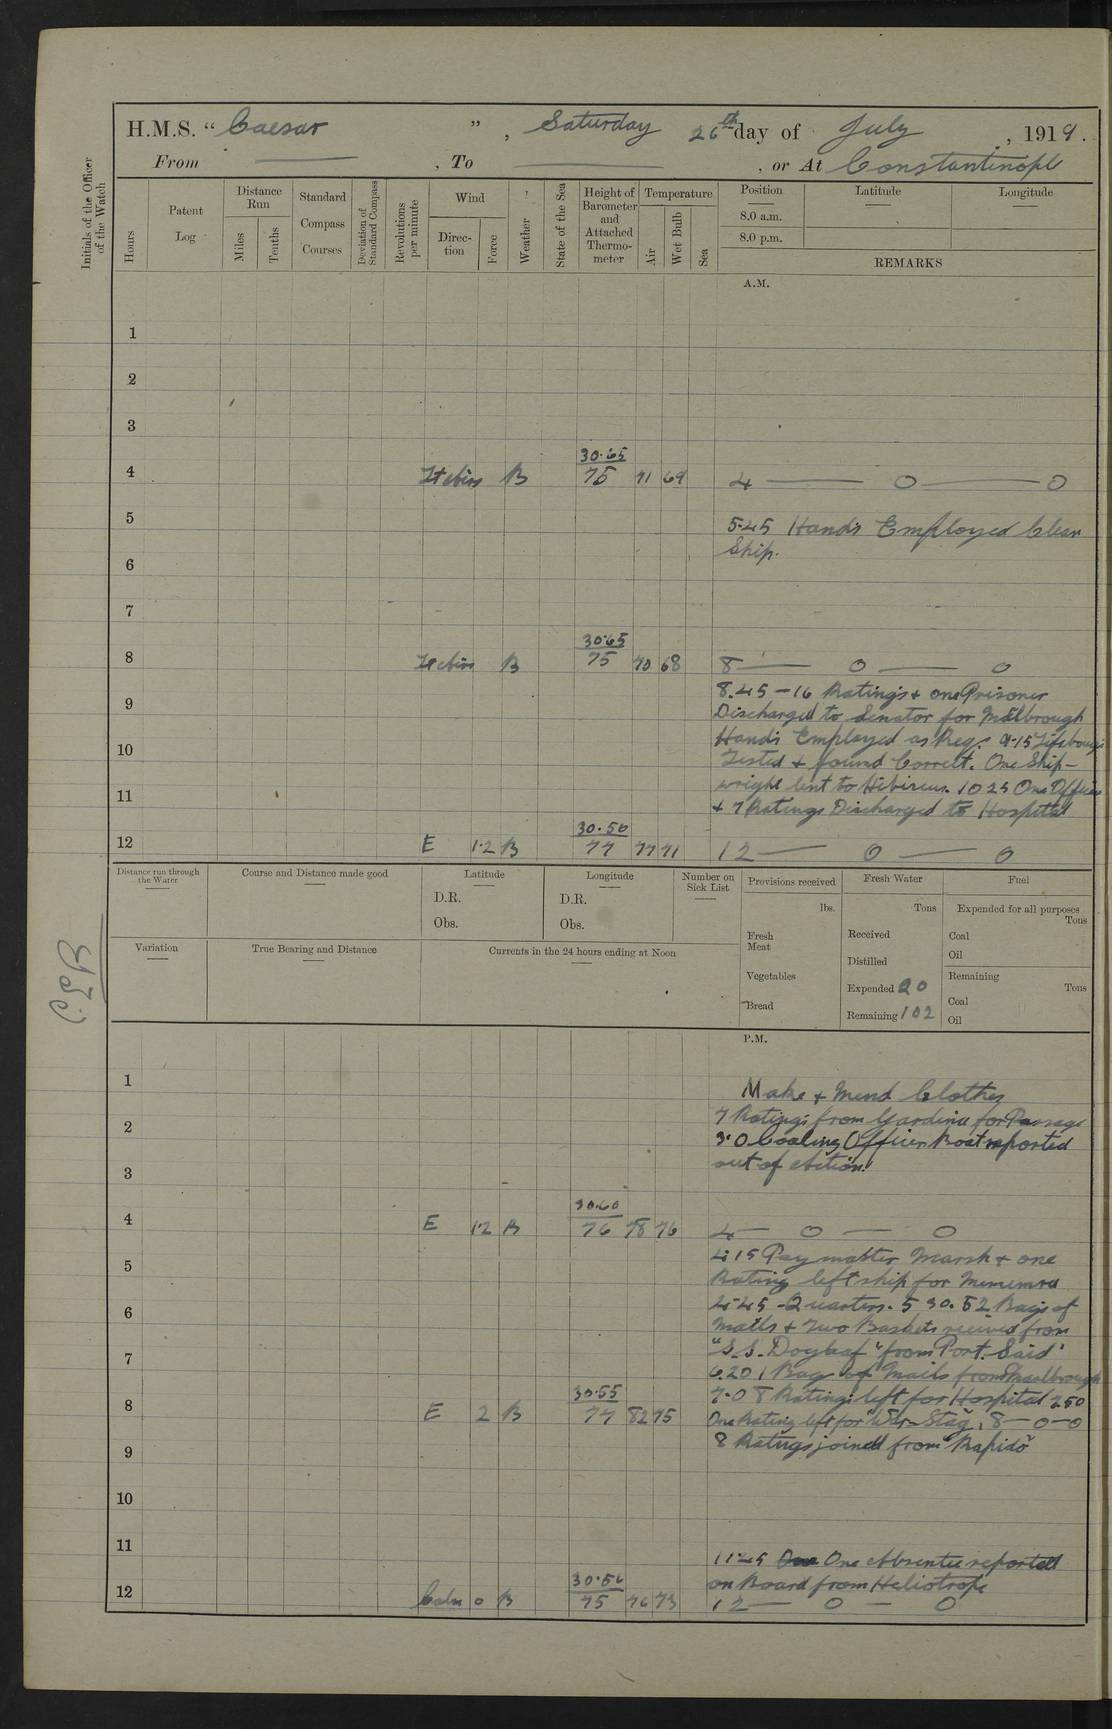 H.M.S. " Caesar " , Saturday 26th day of July , 1919.
From — , To — , or At Constantinople
Initials of the Officer of the Watch
Hours
Patent Log
Distance Run
Miles
Tenths
Standard Compass Courses
Deviation of Standard Compass
Revolutions per minute
Wind
Direc-tion
Force
Weather
State of the Sea
Height of Barometer and Attached Thermo-meter
Temperature
Air
Wet Bulb
Sea
Position
8.0 a.m.
8.0 p.m.
Latitude
Longitude
REMARKS
A.M.
1
2
3
4 Lt airs B 30.65 75 71 69 4 — 0 — 0
5 5.45 Hands Employed Clean
Ship.
6
7
8 Lt airs B 30.65 75 70 68 8 — 0 — 0
8.45 - 16 Ratings + one Prisoner
9 Discharged to Senator for Malbrough
Hands Employed as Req. 9.15 Lifebuoys
10 Tested + found Correct. One Ship-
wright lent to Hibiscus. 10 25 One Officer
11 + 7 Ratings Discharged to Hospital
12 E 1.2 B 30.50 77 77 71 12 — 0 — 0
Distance run through the Water
Course and Distance made good
Latitude
D.R.
Obs.
Longitude
D.R.
Obs.
Number on Sick List
Provisions received
lbs.
Fresh Meat
Vegetables
Bread
Fresh Water
Tons
Received
Distilled
Expended 20
Remaining 102
Fuel
Expended for all purposes
Tons
Coal
Oil
Remaining
Tons
Coal
Oil
Variation
True Bearing and Distance
Currents in the 24 hours ending at Noon
P.M.
1 Make + Mend Clothes
2 7 Ratings from Gardinia for Passage
3.0 Coaling Officer Boat reported
3 out of action
4 E 1.2 B 30.60 76 78 76 4 — 0 — 0
4.15 Paymaster Marsh + one
5 Rating left ship for
4.45 - Quarters. 5 30. 52 Bags of
6 mails + Two Baskets received from
"S.S. " from Port. Said"
7 6.20 1 Bag of Mails from Marlbrough
7.0 8 Ratings left for Hospital 7.50
8 E 2 B 30.55 77 82 75 One Rating left for "War Stag", 8 — 0 — 0
9 8 Ratings joined from "Rapido"
10
11
11.45 One One Absentee reported
on Board from Heliotrope
12 Calm 0 B 75 76 73 12 — 0 — 0